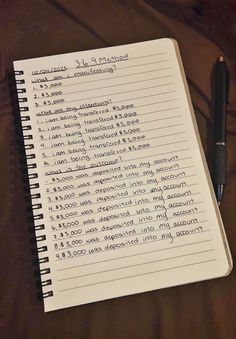 3 6 9 Method
02/04/2023
What am i manifesting?
1. $3,000
2. $3,000
3. $3,000
What are my intentions?
1. i am being transferd $3,000
2. i am being transferd $3,000
3. i am being transferd $3,000
4. i am being transferd $3,000
5. i am being transferd $3,000
6. i am being transferd $3,000
What is the outcome?
1. $3,000 was deposited into my account
2. $3,000 was deposited into my account
3. $3,000 was deposited into my account
4. $3,000 was deposited into my account
5. $3,000 was deposited into my account
6. $3,000 was deposited into my account
7. $3,000 was deposited into my account
8. $3,000 was deposited into my account
9. $3,000 was deposited into my account